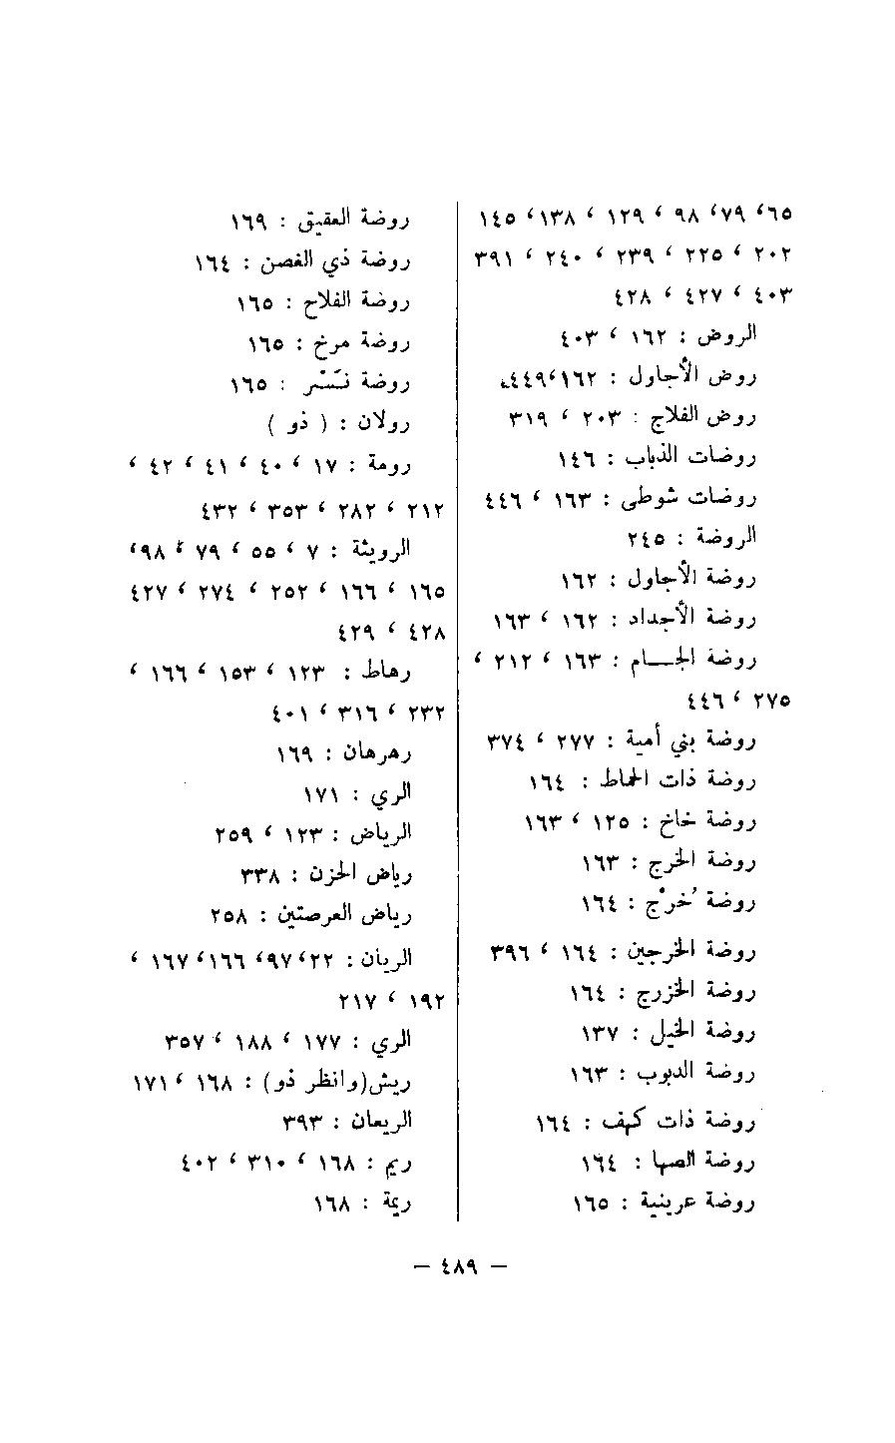 ٦٥، ٧٩، ٩٨ ، ١٢٩ ، ١٣٨، ١٤٥
٢٠٢ ، ٢٢٥ ، ٢٣٩ ، ٢٤٠ ، ٣٩١
٤٠٣ ، ٤٢٧ ، ٤٢٨
الروض : ١٦٢ ، ٤٠٣
روض الأجاول : ١٦٢،٤٤٩
روض الفلاج : ٢٠٣ ، ٣١٩
روضات الذباب : ١٤٦
روضات شوطى : ١٦٣ ، ٤٤٦
الروضة : ٢٤٥
روضة الأجاول : ١٦٢
روضة الأجداد : ١٦٢ ، ١٦٣
روضة الجـــام : ١٦٣ ، ٢١٢ ،
٢٧٥ ، ٤٤٦
روضة بني أمية : ٢٧٧ ، ٣٧٤
روضة ذات الحماط : ١٦٤
روضة خاخ : ١٢٥ ، ١٦٣
روضة الخرج : ١٦٣
روضة خُرْج : ١٦٤
روضة الخرجين : ١٦٤ ، ٣٩٦
روضة الخزرج : ١٦٤
روضة الخيل : ١٣٧
روضة الدبوب : ١٦٣
روضة ذات كهف : ١٦٤
روضة الصها : ١٦٤
روضة عرينية : ١٦٥
روضة العقيق : ١٦٩
روضة ذي الغصن : ١٦٤
روضة الفلاج : ١٦٥
روضة مرخ : ١٦٥
روضة نَسْر : ١٦٥
رولان : ( ذو )
رومة : ١٧ ، ٤٠ ، ٤١ ، ٤٢ ،
٢١٢ ، ٢٨٢ ، ٣٥٣ ، ٤٣٢
الرويثة : ٧ ، ٥٥ ، ٧٩ ، ٩٨،
١٦٥ ، ١٦٦ ، ٢٥٢ ، ٢٧٤ ، ٤٢٧
٤٢٨ ، ٤٢٩
رهاط : ١٢٣ ، ١٥٣ ، ١٦٦ ،
٢٣٢ ، ٣١٦ ، ٤٠١
رهرهان : ١٦٩
الري : ١٧١
الرياض : ١٢٣ ، ٢٥٩
رياض الحزن : ٣٣٨
رياض العرصتين : ٢٥٨
الريان : ٢٢،٩٧، ١٦٦، ١٦٧ ،
١٩٢ ، ٢١٧
الري : ١٧٧ ، ١٨٨ ، ٣٥٧
ريش(وانظر ذو) : ١٦٨ ، ١٧١
الريعان : ٣٩٣
ريم : ١٦٨ ، ٣١٠ ، ٤٠٢
ريمة : ١٦٨
— ٤٨٩ —